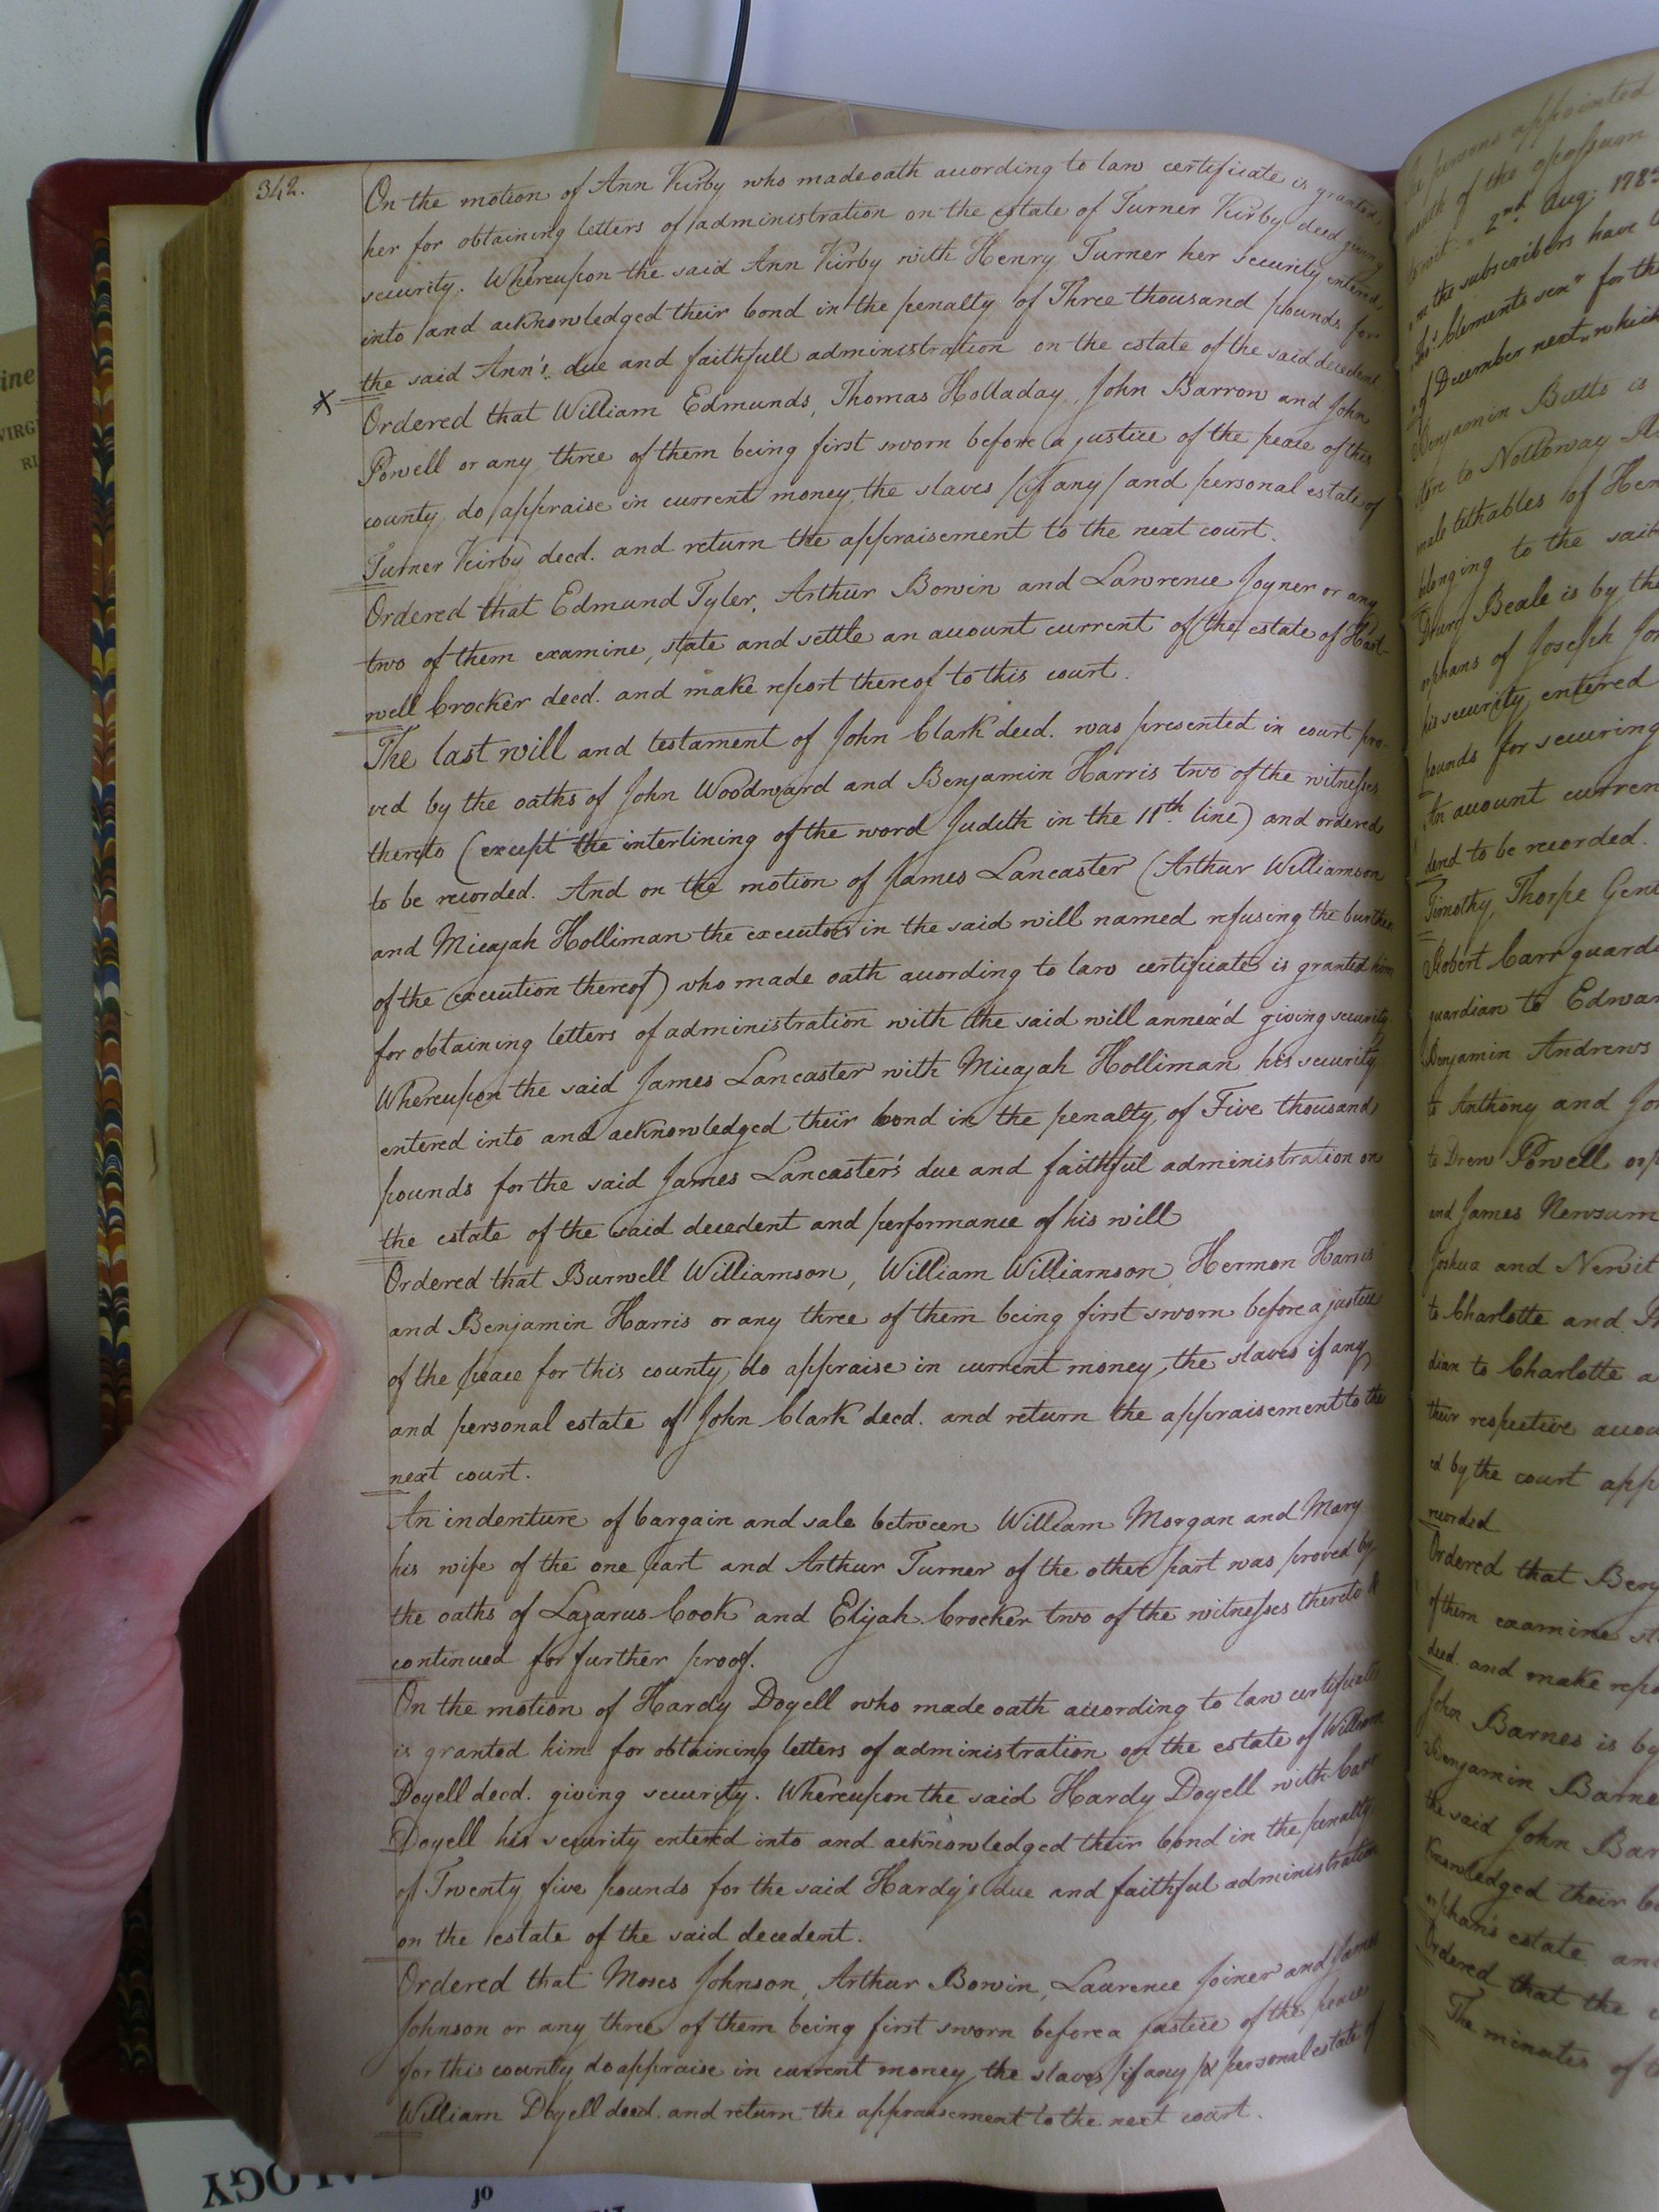 342.
On the motion of Ann Kirby who made oath according to law certificate is granted
her for obtaining letters of administration on the estate of Turner Kirby deed giving
security. Whereupon the said Ann Kirby with Henry Turner her security entered
into and acknowledged their bond in the penalty of Three thousand pounds for
the said Ann's due and faithfull administration on the estate of the said decedent
x
Ordered that William Edmunds, Thomas Holladay, John Barrow and John
Powell or any three of them being first sworn before a justice of the peace of this
county do appraise in current money the slaves (if any) and personal estate of
Turner Kirby decd. and return the appraisement to the next court.
Ordered that Edmund Tyler, Arthur Bowin and Lawrence Joyner or any
two of them examine, state and settle an account current of the estate of Hart-
well Crocker decd. and make report thereof to this court.
The last will and testament of John Clark decd. was presented in court pro-
ved by the oaths of John Woodward and Benjamin Harris two of the witnesses
thereto (except the interlining of the word Judith in the 11th line) and ordered
to be recorded. And on the motion of James Lancaster (Arthur Williamson
and Micajah Holliman the executors in the said will named refusing the burthen
of the execution thereof) who made oath according to law certificate is granted him
for obtaining letters of administration with the said will annex'd giving security.
Whereupon the said James Lancaster with Micajah Holliman his security
entered into and acknowledged their bond in the penalty of Five thousand
pounds for the said James Lancaster's due and faithful administration on
the estate of the said decedent and performance of his will
Ordered that Burwell Williamson, William Williamson, Hermon Harris
and Benjamin Harris or any three of them being first sworn before a justice
of the peace for this county do appraise in current money the slaves if any
and personal estate of John Clark decd. and return the appraisement to the
next court.
An indenture of bargain and sale between William Morgan and Mary
his wife of the one part and Arthur Turner of the other part was proved by
the oaths of Lazarus Cook and Elijah Crocker two of the witnesses thereto &
continued for further proof.
On the motion of Hardy Doyell who made oath according to law certificate
is granted him for obtaining letters of administration on the estate of William
Doyell decd. giving security. Whereupon the said Hardy Doyell with
Doyell his security entered into and acknowledged their bond in the penalty
of Twenty five pounds for the said Hardy's due and faithful administration
on the estate of the said decedent.
Ordered that Moses Johnson, Arthur Bowin, Laurence Joiner and James
Johnson or any three of them being first sworn before a justice of the peace
for this county do appraise in current money the slaves (if any) & personal estate of
William Doyell decd. and return the appraisement to the next court.
persons appointed
of the
2nd Aug: 1783
the subscribers have
Clements senr for the
of December next which
Benjamin Butts is
to Nottoway
male tithables of Hen
belonging to the said
Drury Beale is by the
orphans of Joseph
his security entered
pounds for securing
An account curren
dend to be recorded.
Timothy Thorpe Gent
Robert Carr guard
guardian to Edwar
Benjamin Andrews
to Anthony and Jo
to Drew Powell orp
and James Newsum
Joshua and Newit
to Charlotte and
dian to Charlotte a
their respective accou
ed by the court app
recorded
Ordered that Benj
of them examine st
decd. and make repo
John Barnes is by
Benjamin Barne
the said John Bar
knowledged their bo
orphan's estate and
Ordered that the
The minutes of